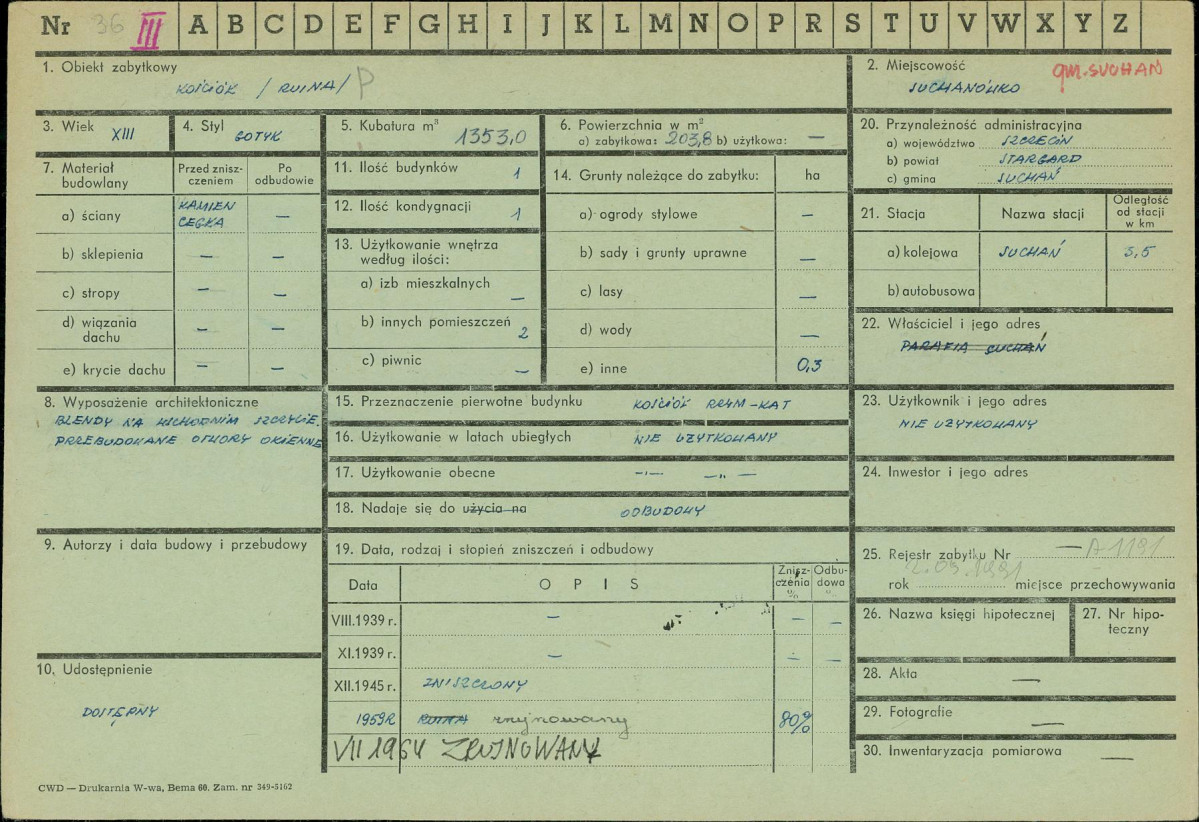 Nr 36 III A B C D E F G H I J K L M N O P R S T U V W X Y Z
1. Obiekt zabytkowy
KOŚCIÓŁ / RUINA / P
2. Miejscowość
gm. SUCHAŃ
SUCHANÓWKO
3. Wiek XIII
4. Styl GOTYK
5. Kubatura m³ 1353,0
6. Powierzchnia w m²
a) zabytkowa: 203,8 b) użytkowa: —
20. Przynależność administracyjna
a) województwo SZCZECIN
b) powiat STARGARD
c) gmina SUCHAŃ
7. Materiał budowlany
Przed zniszczeniem
Po odbudowie
a) ściany KAMIEŃ CEGŁA —
b) sklepienia — —
c) stropy — —
d) wiązania dachu — —
e) krycie dachu — —
11. Ilość budynków 1
12. Ilość kondygnacji 1
13. Użytkowanie wnętrza
według ilości:
a) izb mieszkalnych —
b) innych pomieszczeń 2
c) piwnic —
14. Grunty należące do zabytku: ha
a) ogrody stylowe —
b) sady i grunty uprawne —
c) lasy —
d) wody —
e) inne 0,3
21. Stacja Nazwa stacji Odległość od stacji w km
a) kolejowa SUCHAŃ 3,5
b) autobusowa
22. Właściciel i jego adres
PARAFIA SUCHAŃ
8. Wyposażenie architektoniczne
BLENDY NA WSCHODNIM SZCZYCIE.
PRZEBUDOWANE OTWORY OKIENNE
15. Przeznaczenie pierwotne budynku KOŚCIÓŁ RZYM-KAT
16. Użytkowanie w latach ubiegłych NIE UŻYTKOWANY
17. Użytkowanie obecne —"— —"—
18. Nadaje się do użycia na ODBUDOWY
23. Użytkownik i jego adres
NIE UŻYTKOWANY
24. Inwestor i jego adres
9. Autorzy i data budowy i przebudowy
19. Data, rodzaj i stopień zniszczeń i odbudowy
Data OPIS Zniszczenia % Odbudowa %
VIII.1939 r. — — —
XI.1939 r. — — —
XII.1945 r. ZNISZCZONY
1959R RUINA zrujnowany 80%
VII 1964 ZRUJNOWANY
25. Rejestr zabytku Nr — A 1191
rok 2.03.1991 miejsce przechowywania
26. Nazwa księgi hipotecznej
27. Nr hipoteczny
10. Udostępnienie
DOSTĘPNY
28. Akta —
29. Fotografie —
30. Inwentaryzacja pomiarowa —
CWD — Drukarnia W-wa, Bema 60. Zam. nr 349-5162